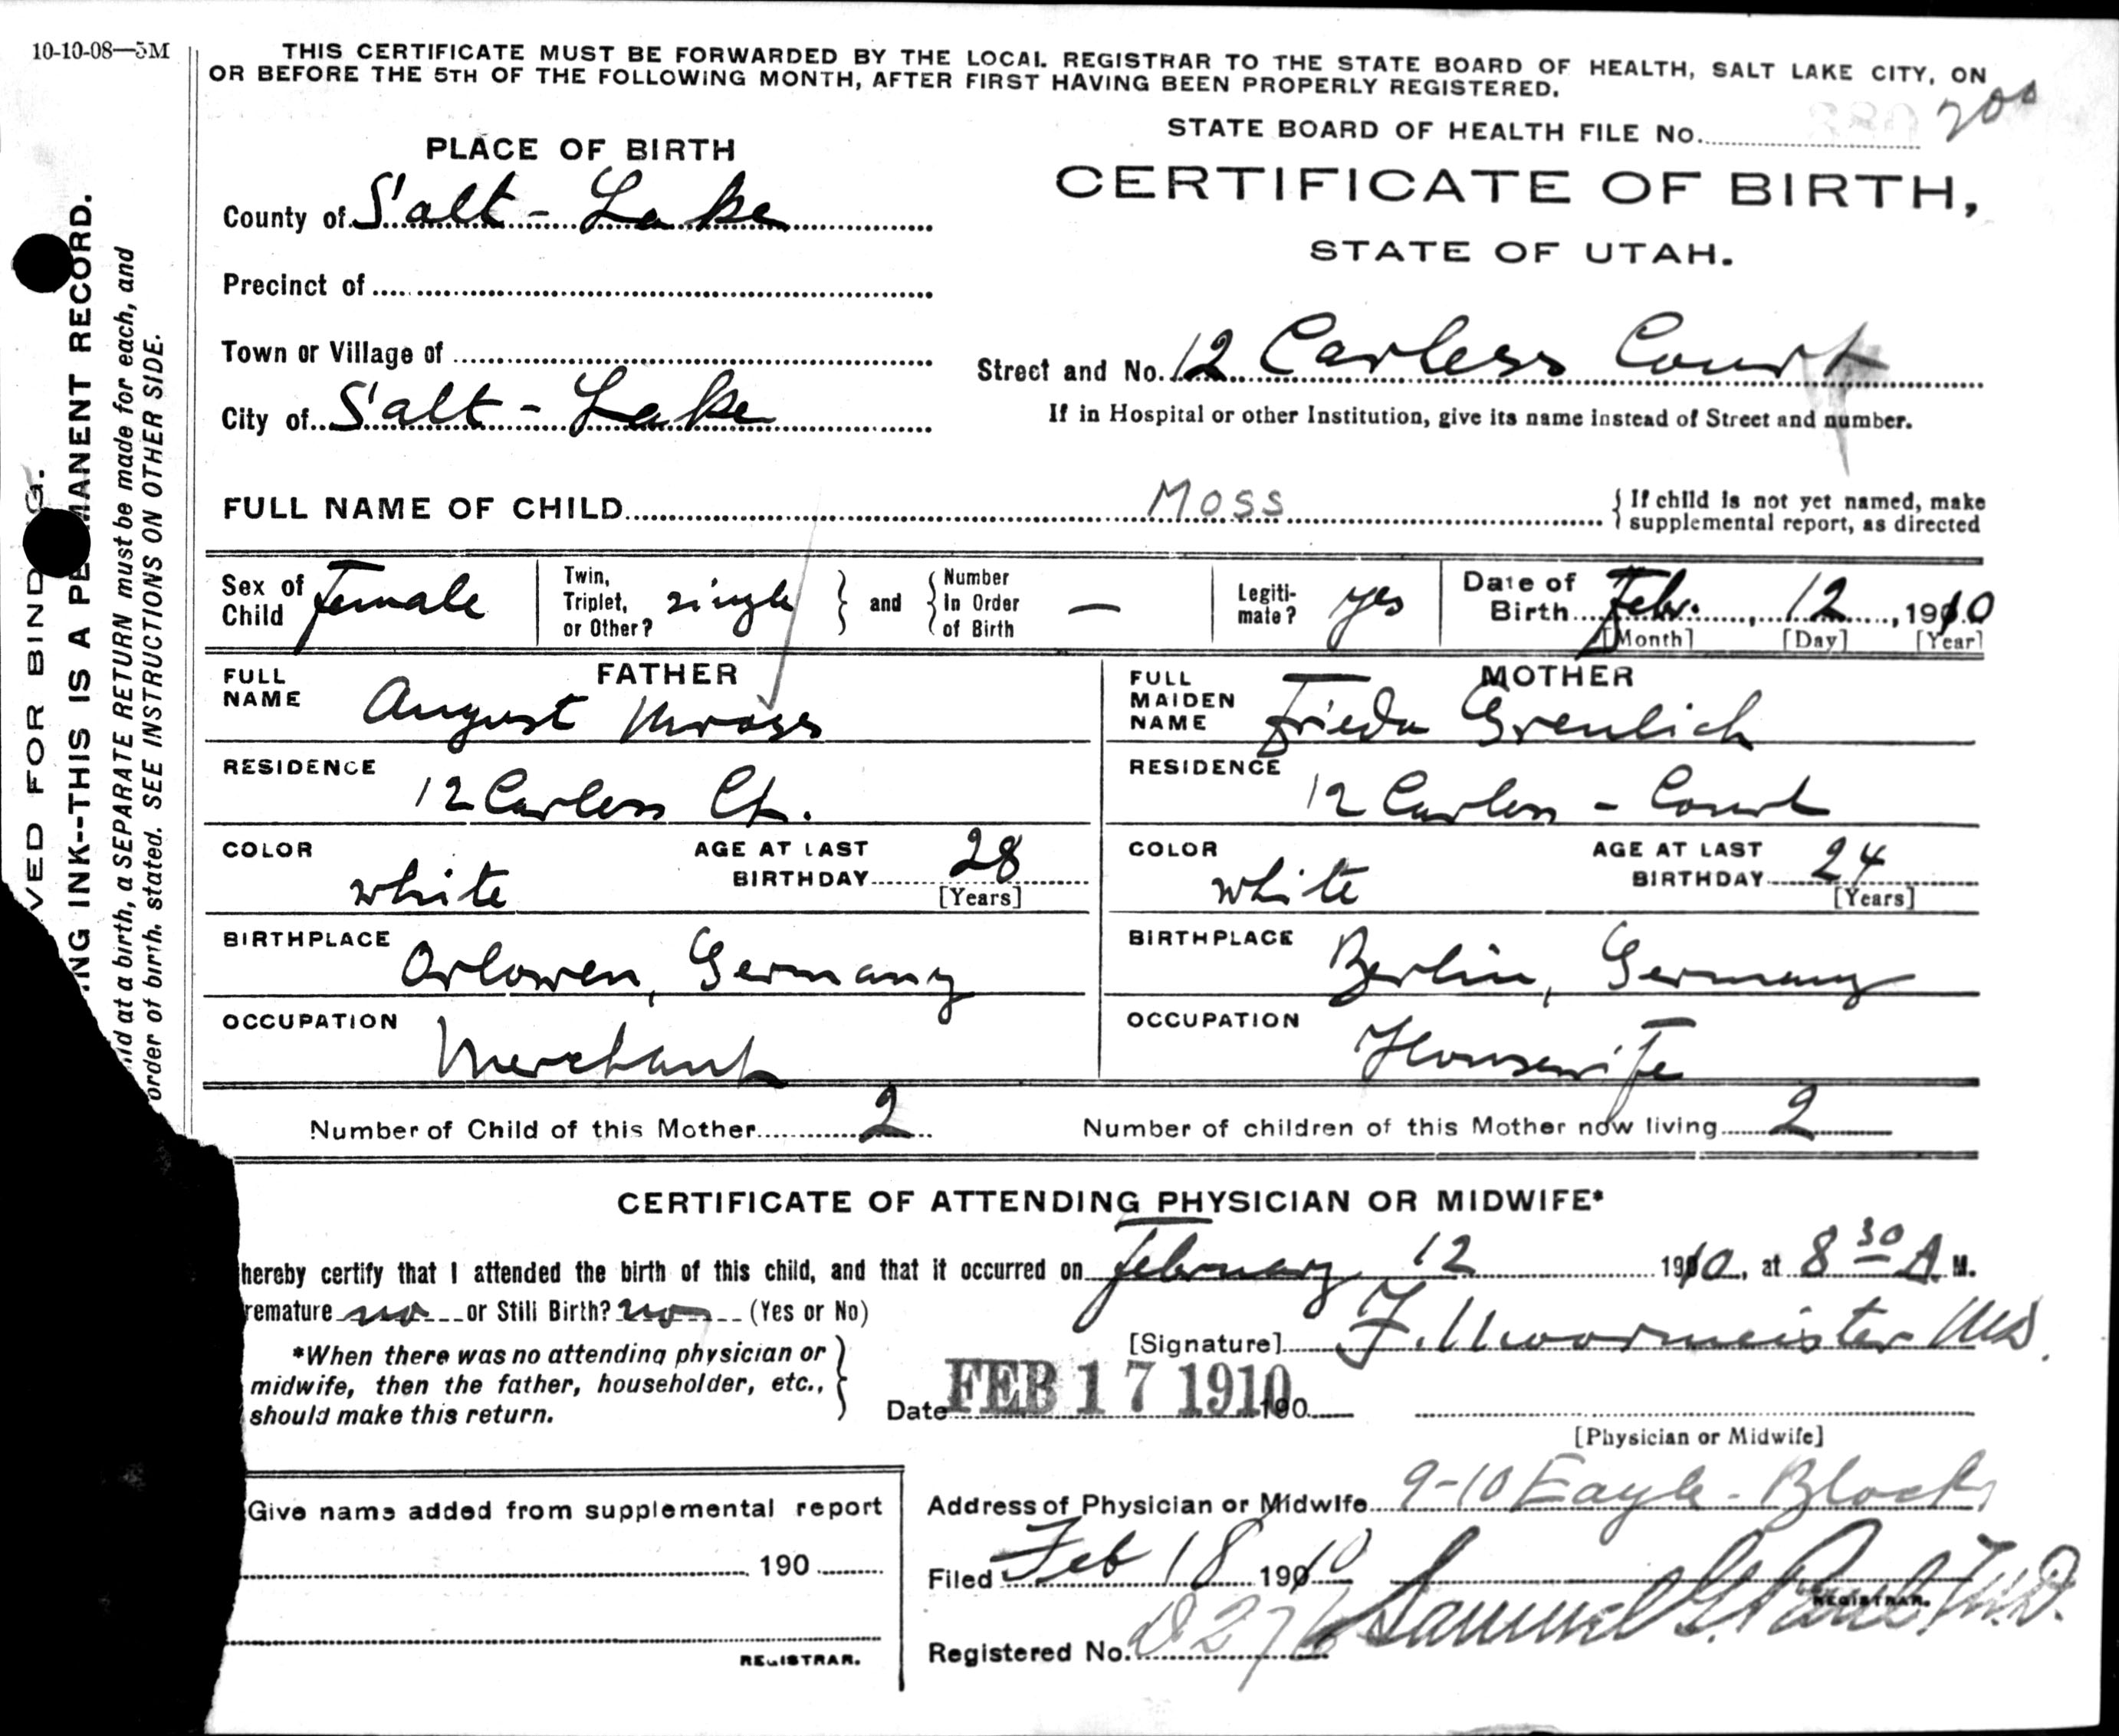 10-10-08—5M
THIS CERTIFICATE MUST BE FORWARDED BY THE LOCAL REGISTRAR TO THE STATE BOARD OF HEALTH, SALT LAKE CITY, ON
OR BEFORE THE 5TH OF THE FOLLOWING MONTH, AFTER FIRST HAVING BEEN PROPERLY REGISTERED.
STATE BOARD OF HEALTH FILE No. 200
PLACE OF BIRTH
CERTIFICATE OF BIRTH,
STATE OF UTAH.
County of Salt-Lake
Precinct of
Town or Village of
Street and No. 12 Carless Court
City of Salt-Lake
If in Hospital or other Institution, give its name instead of Street and number.
FULL NAME OF CHILD Moss
{ If child is not yet named, make
supplemental report, as directed
Sex of Child female
Twin, Triplet, or Other? single } and { Number In Order of Birth —
Legiti-mate? yes
Date of Birth Febr. 12, 1910
[Month] [Day] [Year]
FATHER
FULL NAME August Mross
MOTHER
FULL MAIDEN NAME Frieda Greulich
RESIDENCE 12 Carless Ct.
RESIDENCE 12 Carless - Court
COLOR white
AGE AT LAST BIRTHDAY 28
[Years]
COLOR white
AGE AT LAST BIRTHDAY 24
[Years]
BIRTHPLACE Orlowen, Germany
BIRTHPLACE Berlin, Germany
OCCUPATION Merchant
OCCUPATION Housewife
Number of Child of this Mother 2
Number of children of this Mother now living 2
CERTIFICATE OF ATTENDING PHYSICIAN OR MIDWIFE*
hereby certify that I attended the birth of this child, and that it occurred on February 12 1910, at 8 30 A. M.
remature no or Still Birth? no (Yes or No)
[Signature] F. Moormeister MD.
*When there was no attending physician or
midwife, then the father, householder, etc.,
should make this return.
Date FEB 17 1910 190
[Physician or Midwife]
Give name added from supplemental report
190
REGISTRAR.
Address of Physician or Midwife 9-10 Eagle-Block
Filed Feb 18 1910
Samuel G. Paul M.D.
REGISTRAR.
Registered No. D276
VED FOR BINDING.
ING INK--THIS IS A PERMANENT RECORD.
ild at a birth, a SEPARATE RETURN must be made for each, and
order of birth, stated. SEE INSTRUCTIONS ON OTHER SIDE.